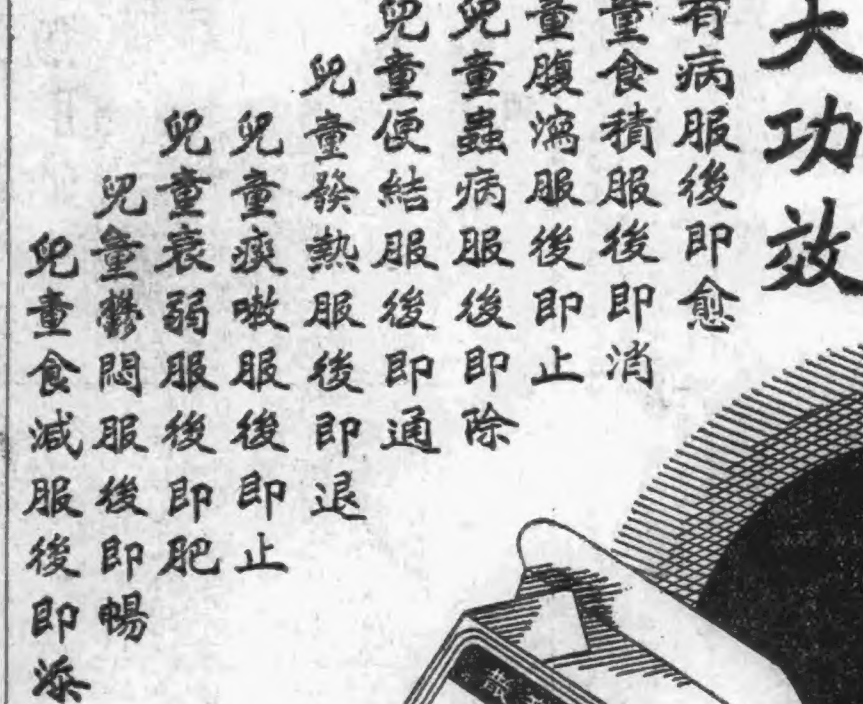 大功效
有病服後即愈
童食積服後即消
童腹瀉服後即止
兒童蟲病服後即除
兒童便結服後即通
兒童發熱服後即退
兒童痰嗽服後即止
兒童衰弱服後即肥
兒童鬱悶服後即暢
兒童食減服後即添
散